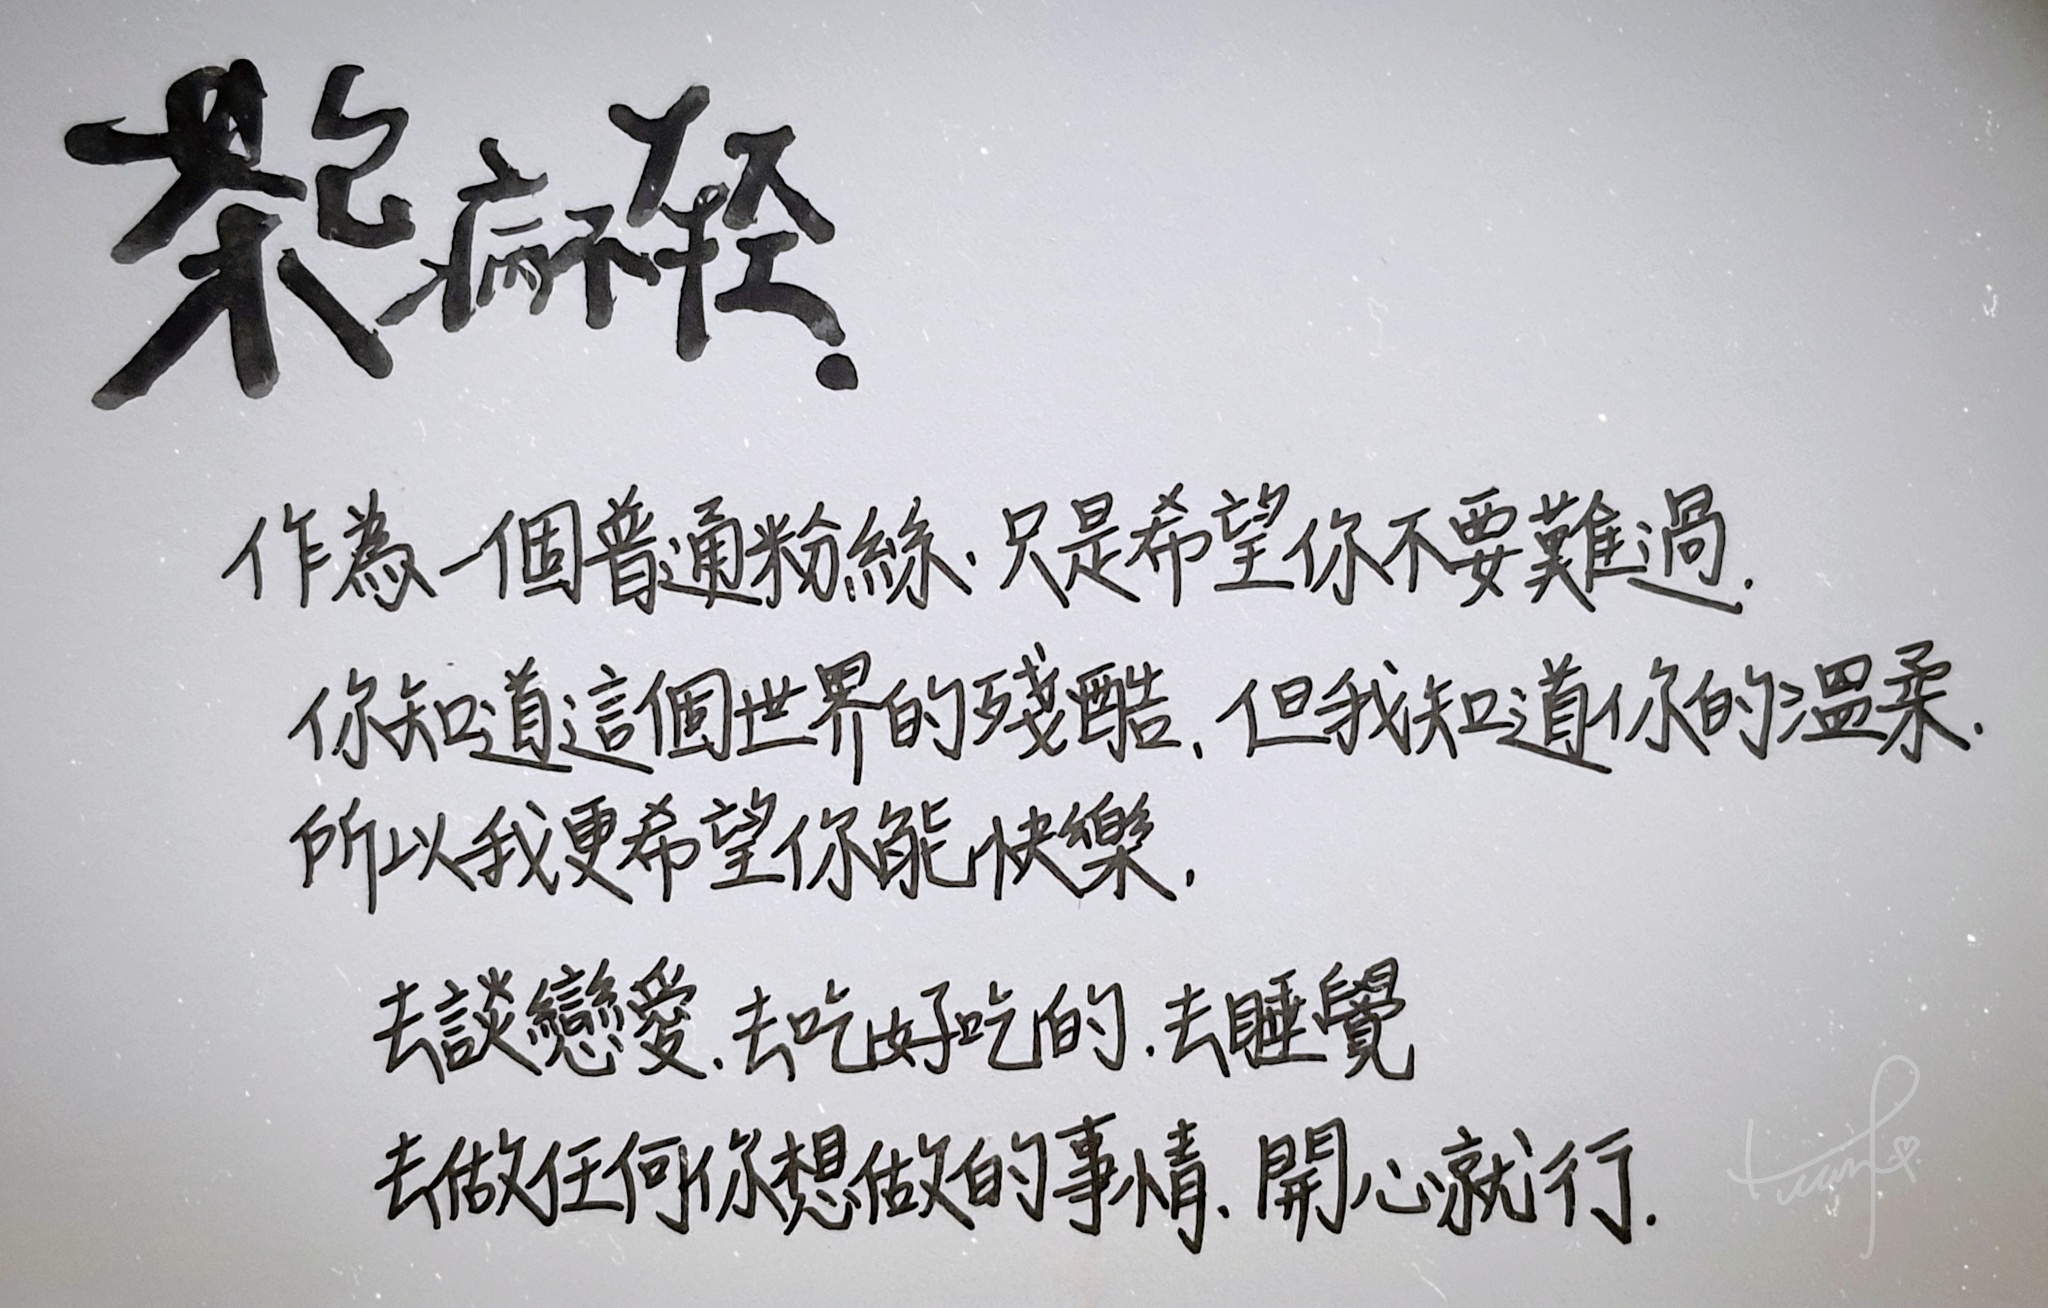 病不轻.
作為一個普通粉絲,只是希望你不要難過.
你知道這個世界的殘酷,但我知道你的溫柔.
所以我更希望你能快樂,
去談戀愛,去吃好吃的,去睡覺
去做任何你想做的事情,開心就行.